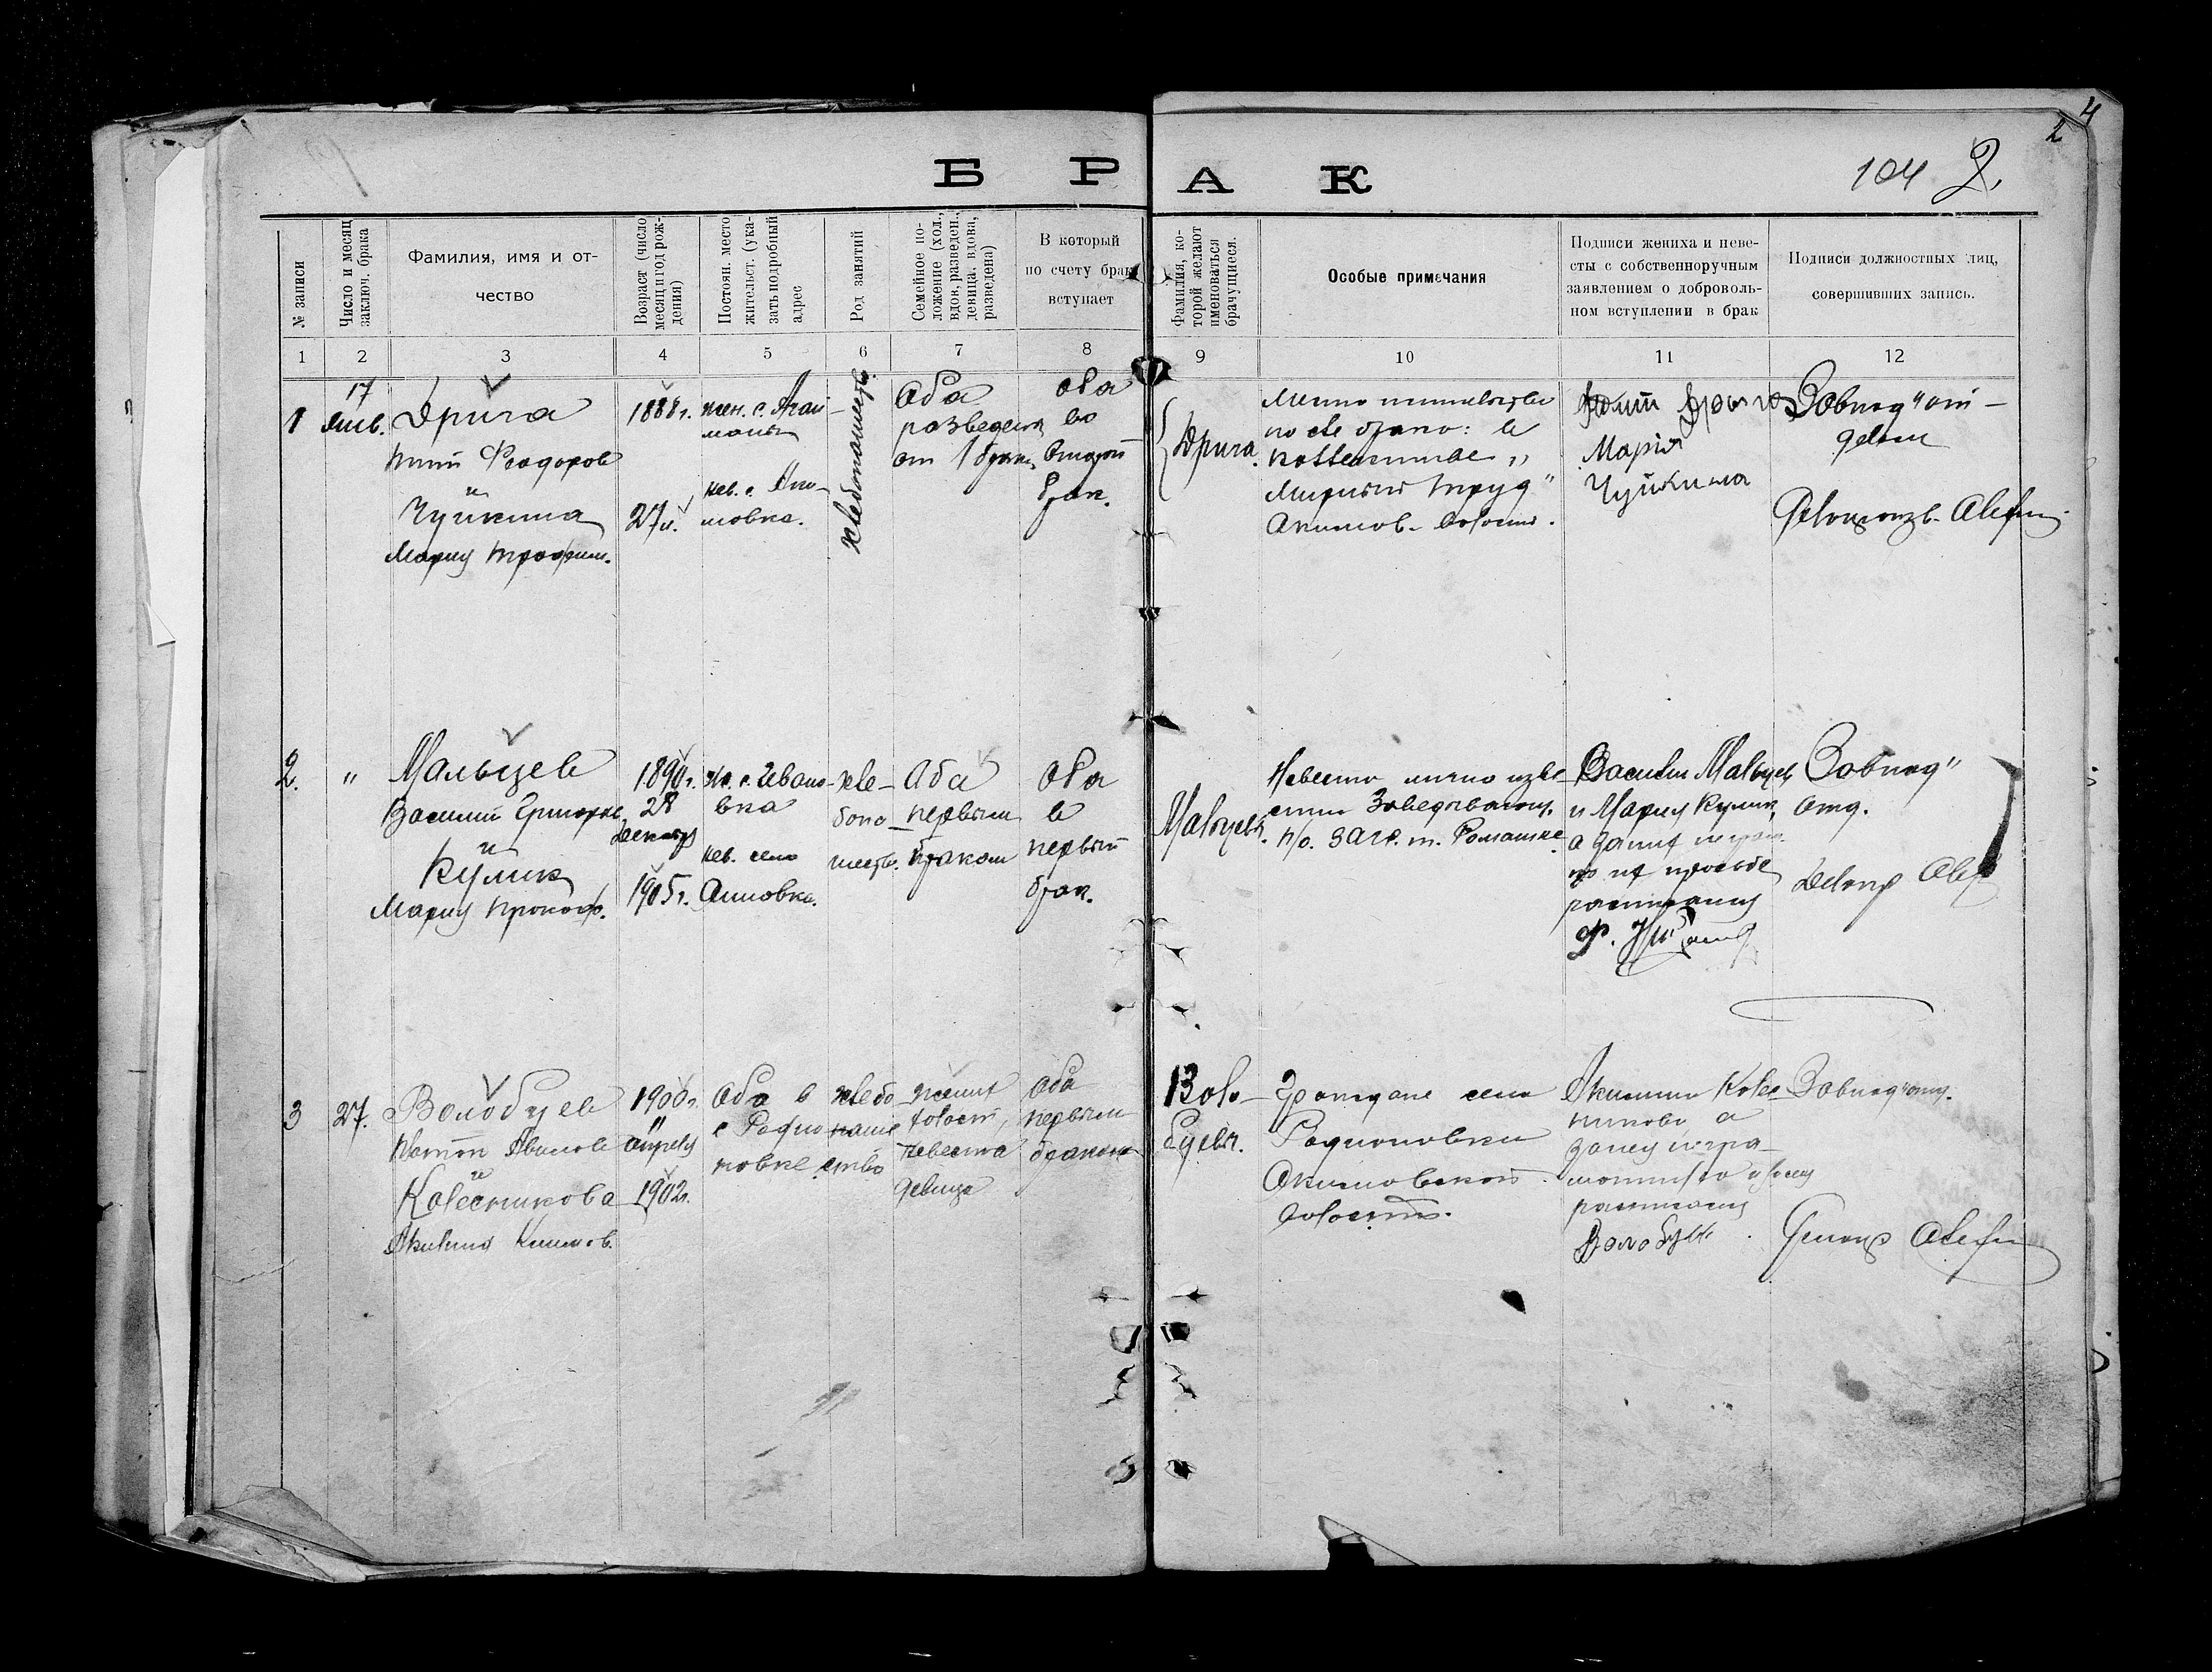 4
2
БРАК
104 2.
№ записи
Число и месяц
заключ. брака
Фамилия, имя и от-
чество
Возраст (число
месяц и год рож-
дения)
Постоян. место
жительст. (ука-
зать подробный
адрес
Род занятий
Семейное по-
ложение (хол.,
вдов, разведен.,
девица, вдова,
разведена)
В который
по счету брак
вступает
Фамилия, ко-
торой желают
именоваться
брачущиеся.
Особые примечания
Подписи жениха и неве-
сты с собственноручным
заявлением о доброволь-
ном вступлении в брак
Подписи должностных лиц,
совершивших запись.
1 2 3 4 5 6 7 8 9 10 11 12
1
17
янв.
Дрига
Феодоров
и
Чуйкина
Мария Трофим.
1888 г.
27 л.
жен. с. Агай-
маны
нев. с. Аки-
мовка.
хлебопашеств.
Оба
разведены
от 1 брака
оба
во
второй
брак.
Дрига.
Место жительства
после брака: в
„
Мирный труд"
Акимов. волости.
Дрига
Марія
Чуйкина
Завпод"от-
делом
Делопроизв.
2.
"
Мальцев
Василий Григорьев.
и
Кулик
Мария Прокоф.
1890 г.
28
декабря
1905 г.
ж. с. Ивано-
вка
нев. село
Акимовка.
хле-
бопа-
шеств.
Оба
первым
браком
Оба
в
первый
брак.
Мальцевы.
Невеста лично изве-
стна Заведывающ.
п/о. загс. т. Ромашке
Василий Мальцев
и Мария Кулик,
а за них негра.
по их просьбе
расписался
Ф.
Завпод"
отд.
Делопр
3
27.
Волобуев
Антон
и
Колесникова
Акилина Климов.
1900 г.
11
апреля
1902 г.
Оба в
с Родио-
новке
хлебо
паше
ство
жених
холост,
невеста
девица
оба
первым
браком
Воло-
буевы.
Граждане села
Родионовки
Акимовской
волости.
Акилина Колес-
никова а
за нея негра-
мотность
расписался
Волобуев
Завпод"отд.
Делопр